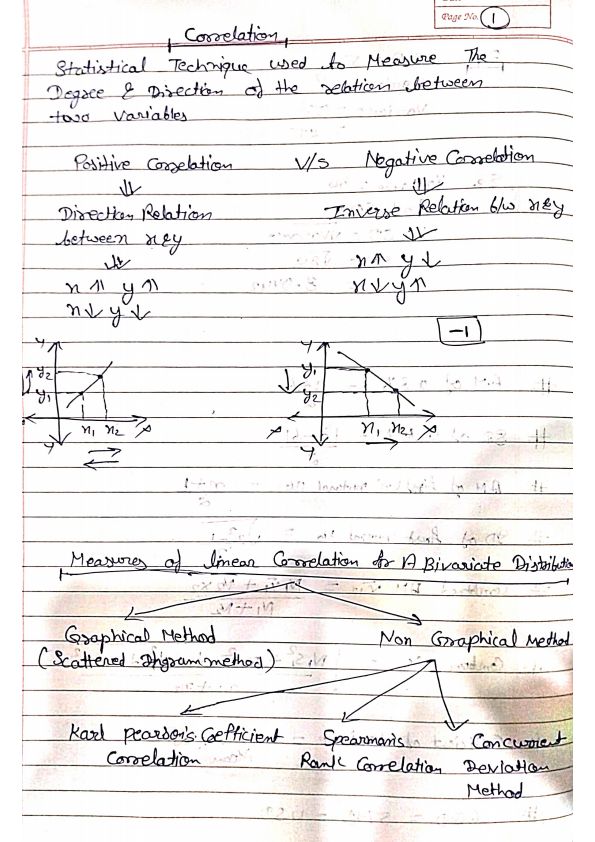 Page No. 1
Correlation
Statistical Technique used to Measure The
Degree & Direction of the relation between
two variables
Positive Correlation V/s Negative Correlation
Direction Relation
between x & y
x ↑ y ↑
x ↓ y ↓
Inverse Relation b/w x & y
x ↑ y ↓
x ↓ y ↑
-1
y
y2
y1
x1 x2 x
y
y
y1
y2
x x1 x2 x
y
Measures of linear Correlation for A Bivariate Distributio
Graphical Method
(Scattered Digram method)
Non Graphical Method
Karl Pearson's Coefficient
Correlation
Spearman's
Rank Correlation
Concurrent
Deviation
Method